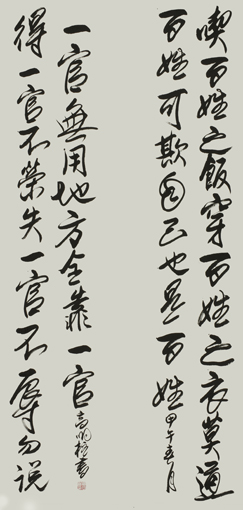 喫百姓之飯穿百姓之衣莫道
百姓可欺自己也是百姓
甲午春月
得一官不榮失一官不辱勿說
一官無用地方全靠一官